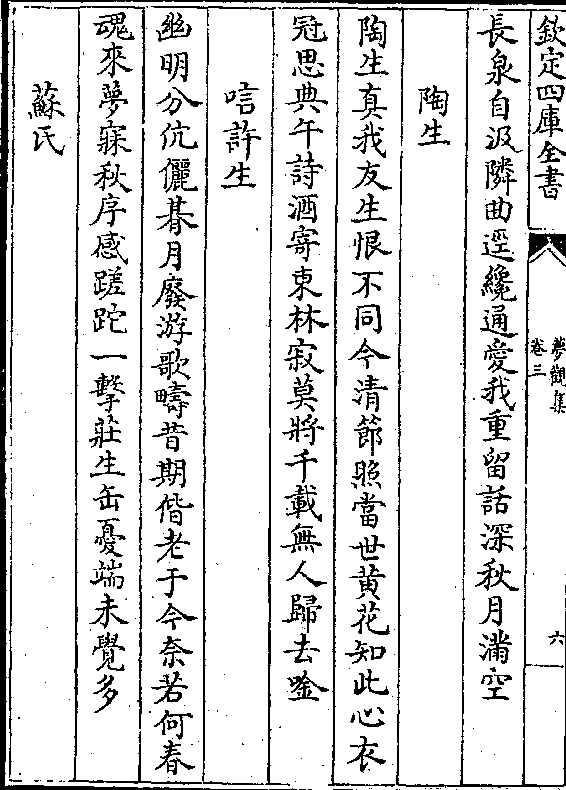 欽定四庫全書
夢觀集
卷三
六
長泉自汲隣曲逕纔通愛我重留話深秋月滿空
陶生
陶生真我友生恨不同今清節照當世黃花知此心衣
冠思典午詩酒寄東林寂莫將千載無人歸去唫
唁許生
幽明分伉儷朞月廢游歌疇昔期偕老于今奈若何春
魂來夢寐秋序感蹉跎一擊莊生缶憂端未覺多
蘇氏